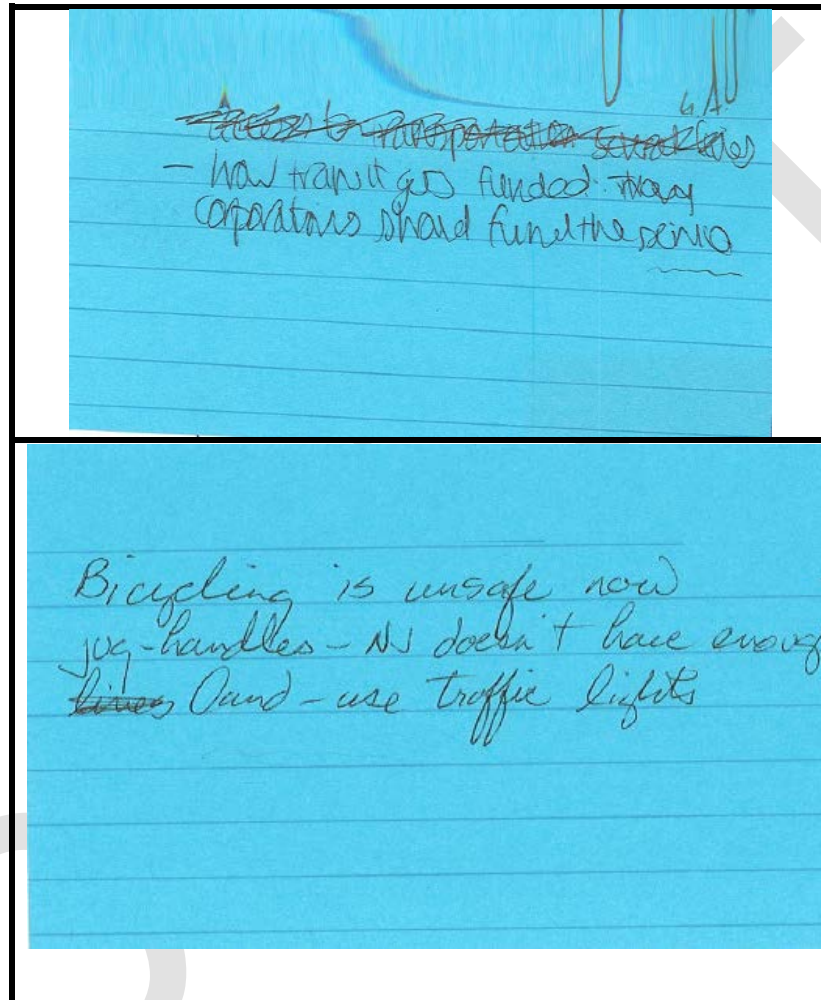 access to transportation
- how transit gets funded. Many
corporations should fund the service
Bicycling is unsafe now
jug-handles - NJ doesn't have enoug
lines land - use traffic lights